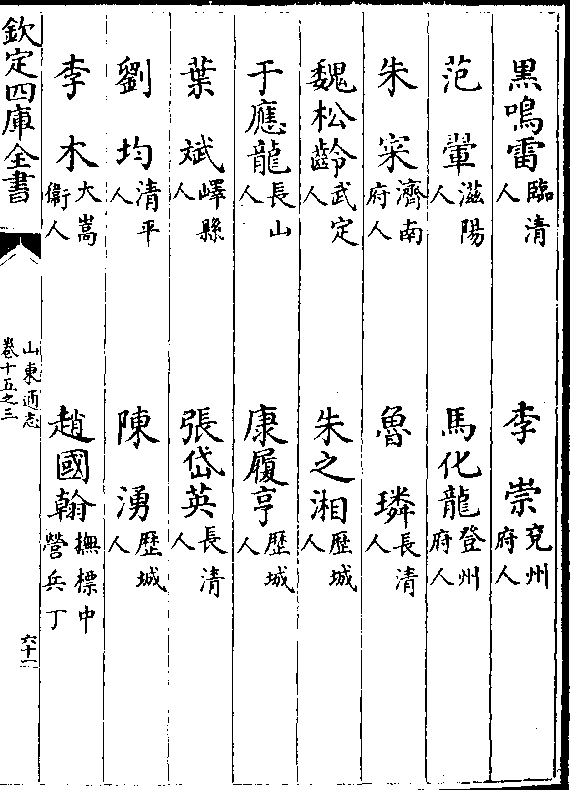 黒鳴雷臨清人　李崇兗州府人
范鞏滋陽人　馬化龍登州府人
朱寀濟南府人　魯璘長清人
魏松齡武定人　朱之湘歴城人
于應龍長山人　康履亨歴城人
葉斌嶧縣人　張岱英長清人
劉均清平人　陳湧歴城人
李木大嵩衛人　趙國翰撫標中營兵丁
欽定四庫全書
山東通志
卷十五之三
六十一